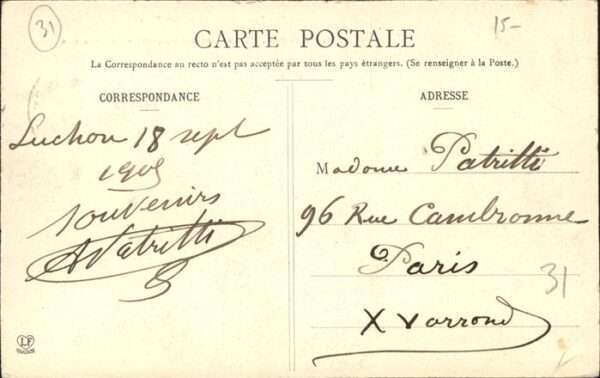 31
15-
CARTE POSTALE
La Correspondance au recto n'est pas acceptée par tous les pays étrangers. (Se renseigner à la Poste.)
CORRESPONDANCE
ADRESSE
Luchon 18 sept
souvenirs
APatritti
Madame Patritti
96 Rue Cambronne
Paris
31
X Varrond
LF